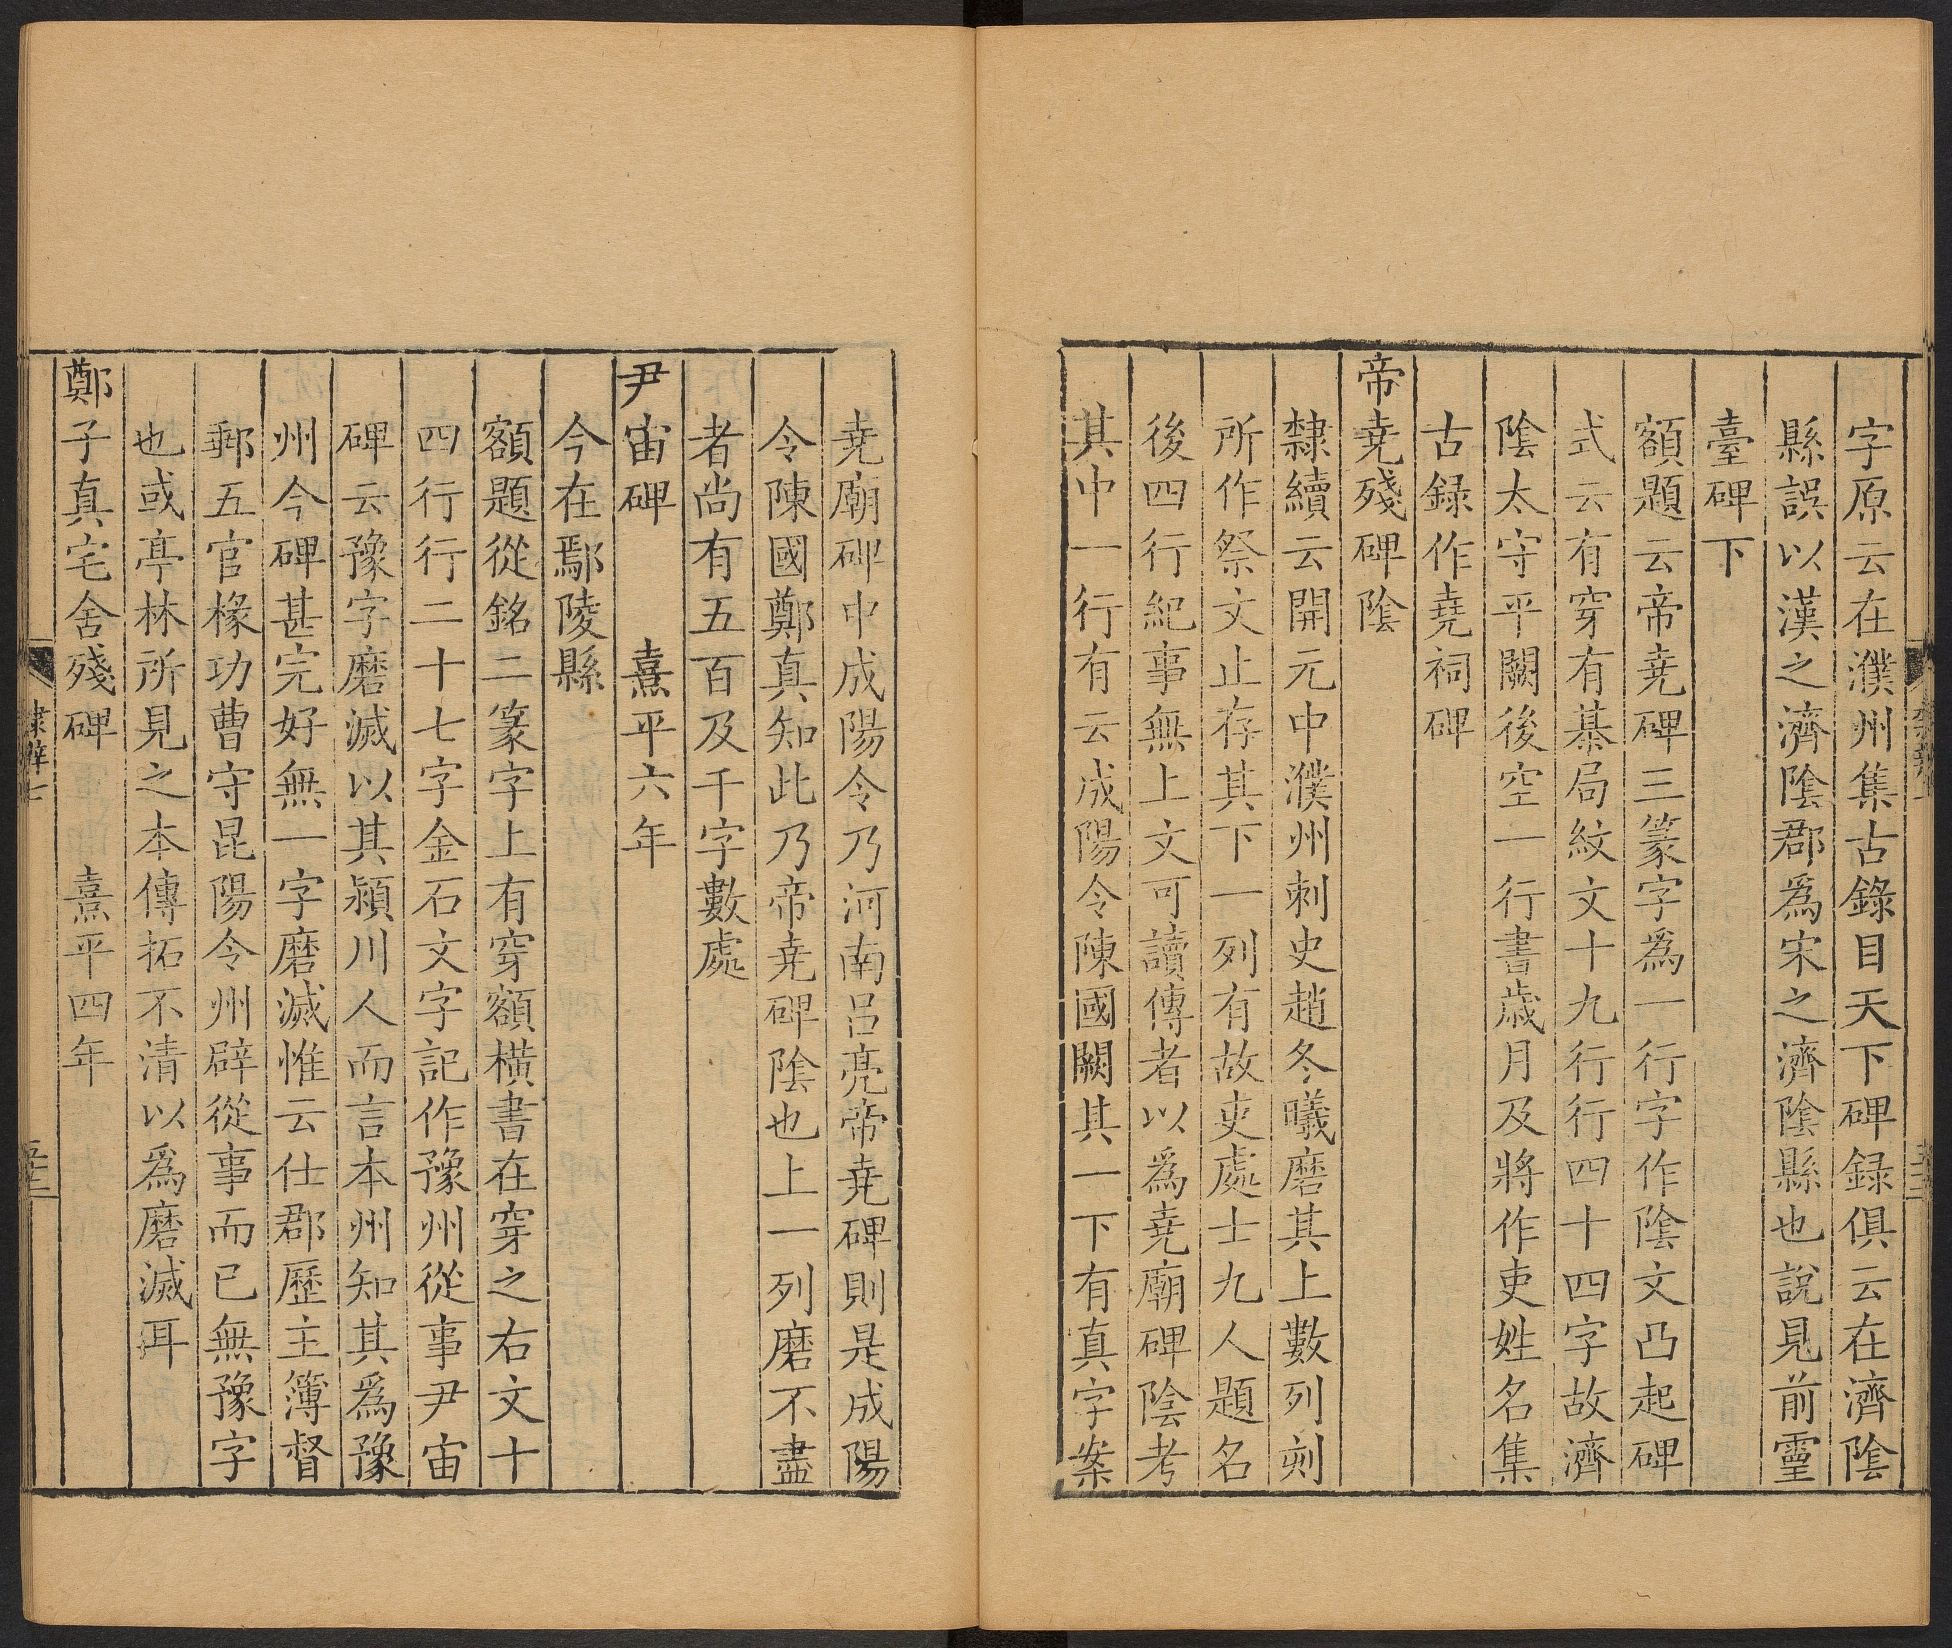 字原云在濮州集古錄目天下碑録俱云在濟陰
縣誤以漢之濟陰郡爲宋之濟陰縣也說見前靈
臺碑下
額題云帝尭碑三篆字爲一行字作陰文凸起碑
式云有穿有碁局紋文十九行行四十四字故濟
陰太守平闕後空一行書歲月及將作吏姓名集
古録作尭祠碑
帝尭殘碑陰
隸續云開元中濮州刺史趙冬曦磨其上數列刻
所作祭文止存其下一列有故吏處士九人題名
後四行紀事無上文可讀傳者以爲尭廟碑陰考
其中一行有云成陽令陳國闕其一下有真字案
尭廟碑中成陽令乃河南呂亮帝尭碑則是成陽
令陳國鄭真知此乃帝尭碑陰也上一列磨不盡
者尚有五百及千字數處
尹宙碑 熹平六年
今在鄢陵縣
額題從銘二篆字上有穿額橫書在穿之右文十
四行行二十七字金石文字記作豫州從事尹宙
碑云豫字磨滅以其潁川人而言本州知其爲豫
州今碑甚完好無一字磨滅惟云仕郡歷主簿督
郵五官椽功曹守昆陽令州辟從事而已無豫字
也或亭林所見之本傳拓不清以爲磨滅耳
鄭子真宅舍殘碑 熹平四年